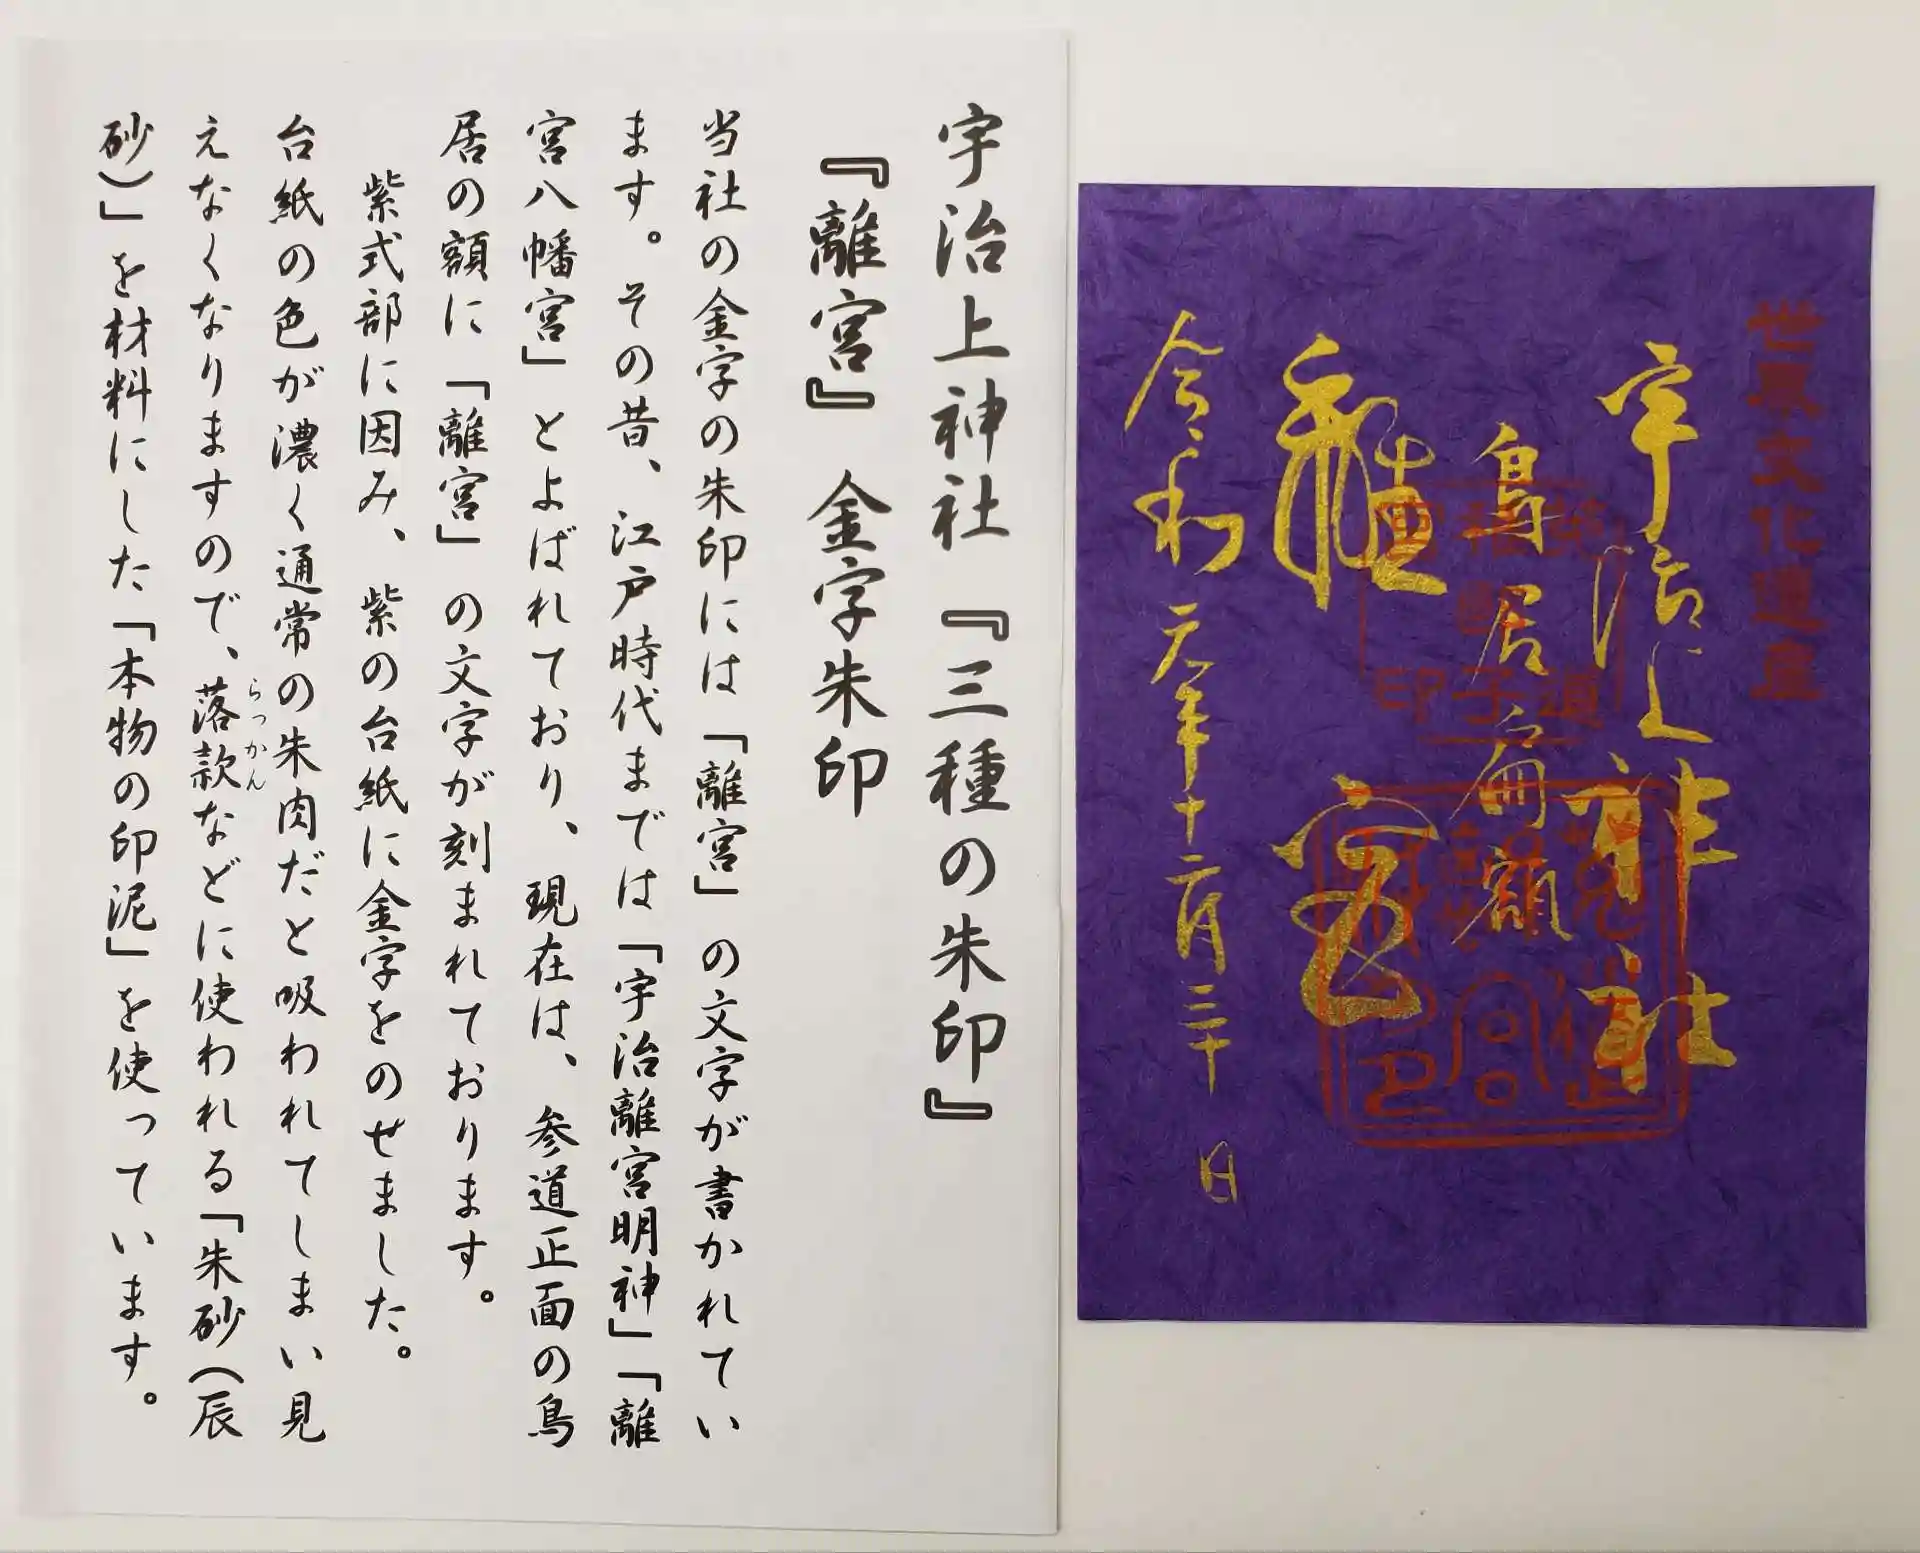 宇治上神社『三種の朱印』
『離宮』 金字朱印
当社の金字の朱印には「離宮」の文字が書かれてい
ます。その昔、江戸時代までは「宇治離宮明神」「離
宮八幡宮」とよばれており、現在は、参道正面の鳥
居の額に「離宮」の文字が刻まれております。
紫式部に因み、紫の台紙に金字をのせました。
台紙の色が濃く通常の朱肉だと吸われてしまい見
えなくなりますので、落款などに使われる「朱砂(辰
らっかん
砂)」を材料にした「本物の印泥」を使っています。
世界文化遺産
宇治上神社
鳥居扁額
離宮
令和元年十二月三十日